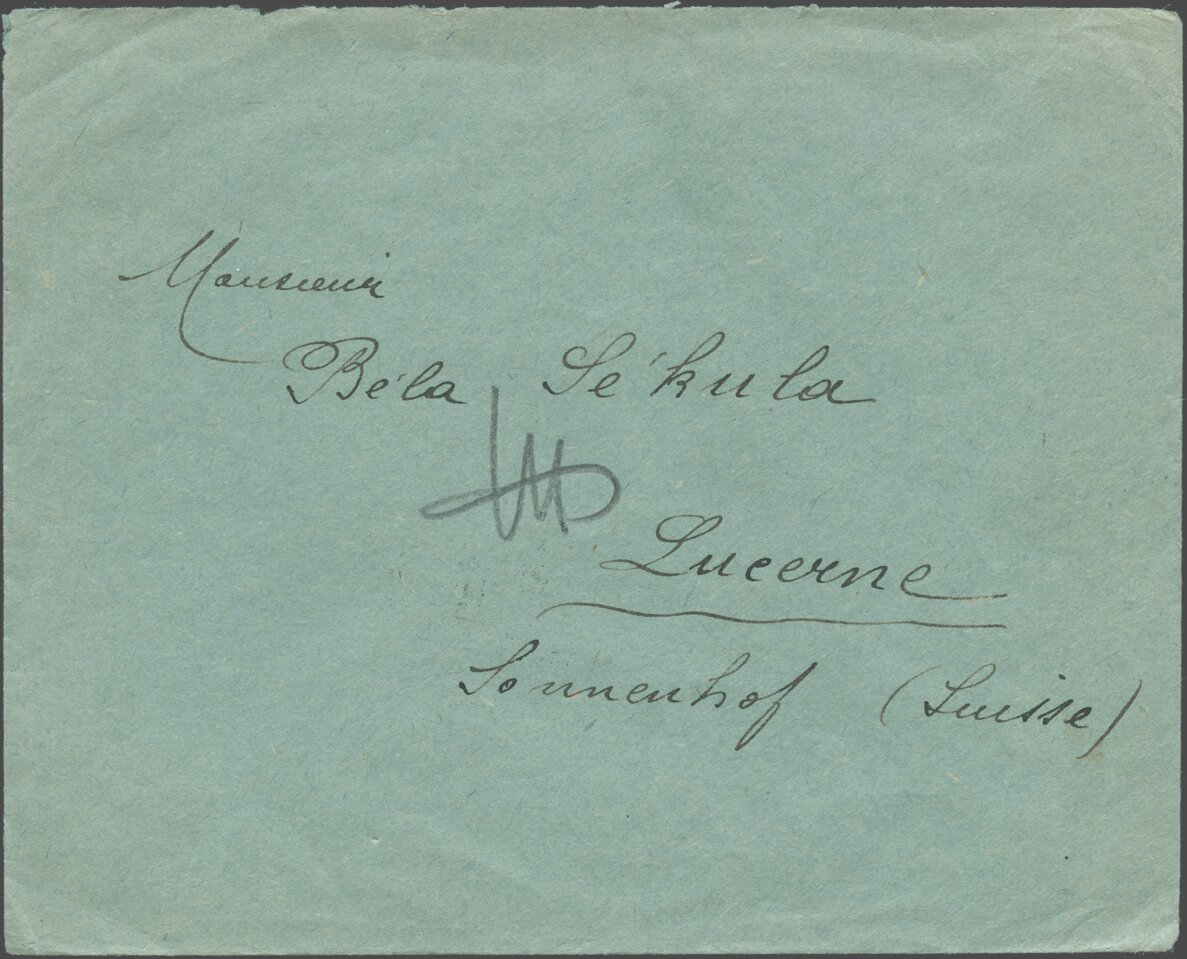 Monsieur
Béla Sékula
Lucerne
Sonnenhof (Suisse)